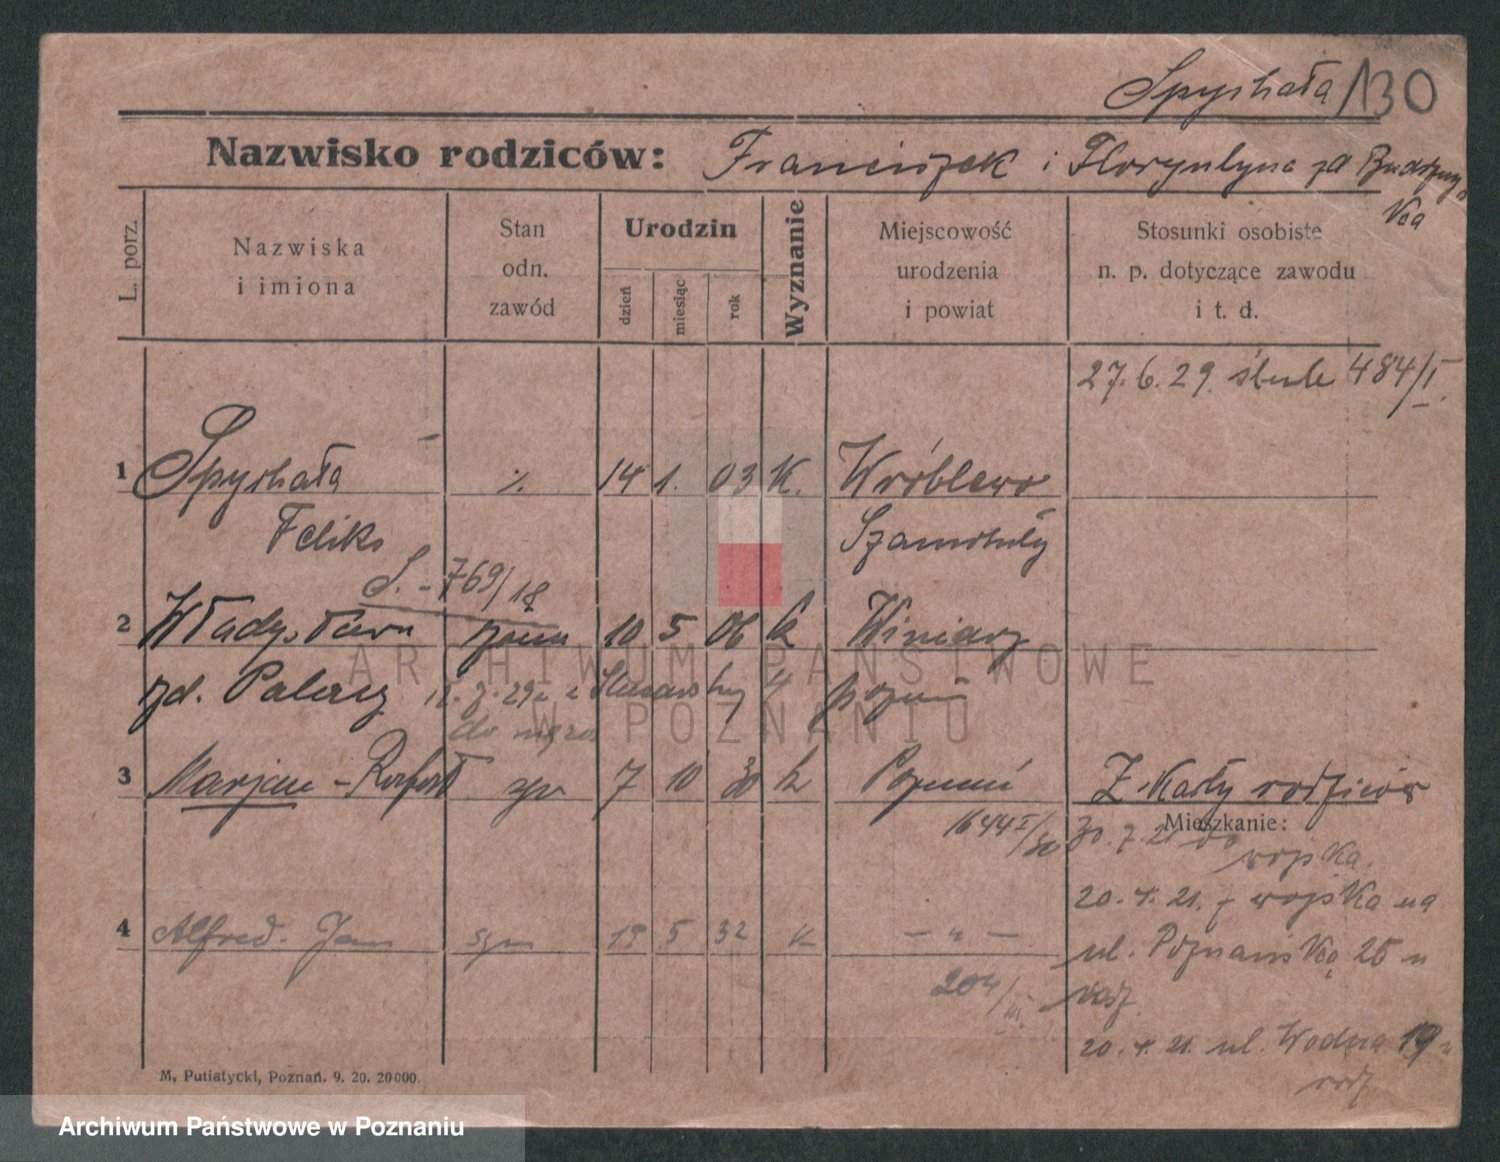 Spychała /130
Nazwisko rodziców: Franciszek i Florentyna zd
ska
L. porz.
Nazwiska i imiona
Stan odn. zawód
Urodzin
dzień miesiąc rok
Wyznanie
Miejscowość urodzenia i powiat
Stosunki osobiste n. p. dotyczące zawodu i t. d.
27.6.29. ślub 484/I.
1 Spychała ⁒ 14 1. 03 K. Wróblewo
Feliks Szamotuły
S. - 769/18
2 Władysława żona 10 5 06 k Winiary
zd. Palacz 4 Poznań
do męża
3 Marjan - Rafał syn 7 10 30 k Poznań Z karty rodziców
1644 I/30
Mieszkanie:
30.7.21 do
wojska.
20.4.21. z wojska na
4 Alfred. Jan syn 19 5 32 k — " —
ul. Poznańska 25 u
204/III.
rodz.
20.4.21. ul. Wodna 19 u
rodz
M. Putiatycki, Poznań. 9. 20. 20000.
ARCHIWUM PAŃSTWOWE
W POZNANIU
Archiwum Państwowe w Poznaniu